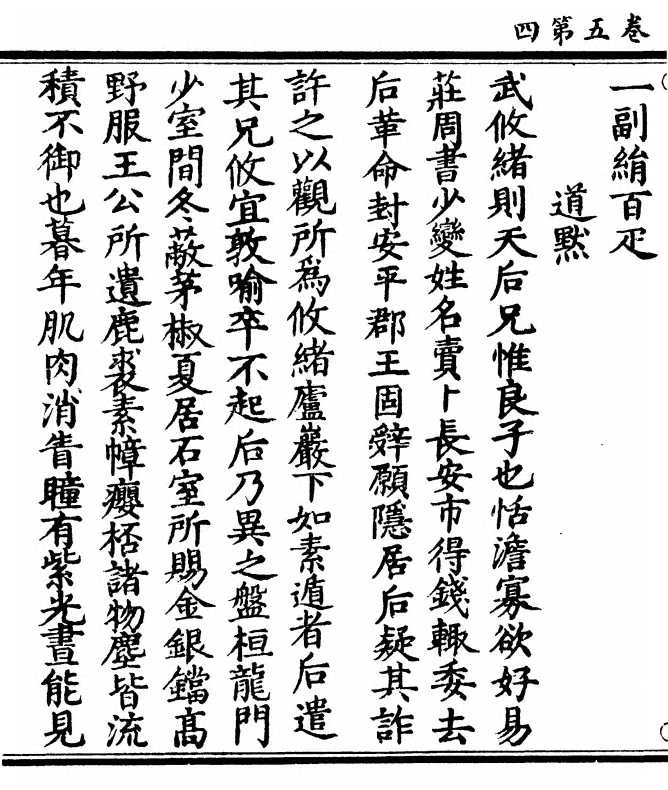 卷五第四
一副絹百疋
道黙
武攸緒則天后兄惟良子也恬澹寡欲好易
莊周書少變姓名賣卜長安市得錢輙委去
后革命封安平郡王固辤願隱居后疑其詐
許之以觀所爲攸緒廬巖下如素遁者后遣
其兄攸宜敦喻卒不起后乃異之盤桓龍門
少室間冬蔽茅椒夏居石室所賜金銀鐺鬲
野服王公所遺鹿裘素幛癭桮諸物塵皆流
積不御也暮年肌肉消眚瞳有紫光晝能見